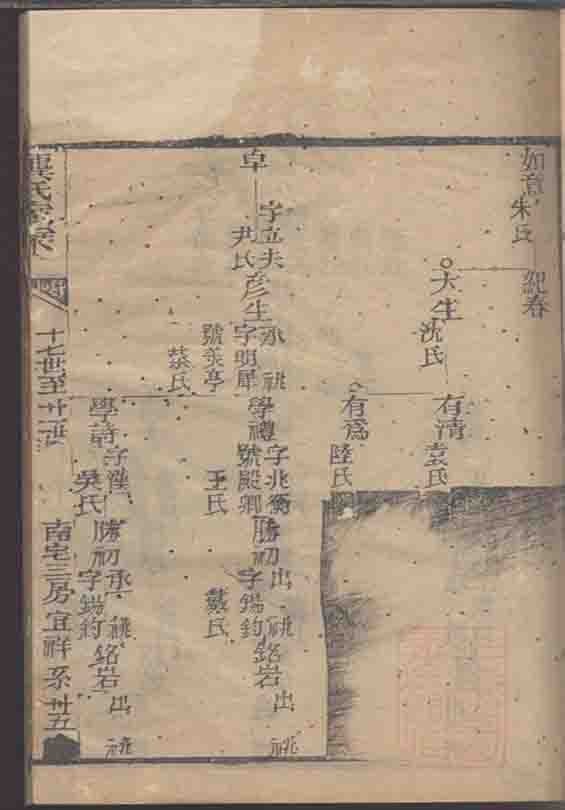 如意
朱氏
紀春
大生
沈氏
有清
袁氏
有爲
陸氏
卓
字立夫
尹氏
彦生
承祧
字明犀
號美亭
蔡氏
學禮
字兆衡
號殿卿
王氏
勝初
出祧
字錫鈞
戴氏
銘岩
出祧
學詩
字漢一
吳氏
勝初
承祧
字錫鈞
銘岩
出祧
龔氏家乘
十七世至廿一世
南宅三房宜祥系
廿五